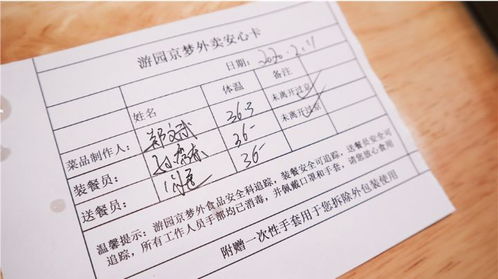 游园京梦外卖安心卡
日期：2020.2.11
姓名 体温 备注
菜品制作人： 36.3 未离开过京
装餐员： 36 未离开过京
送餐员： 36
温馨提示：游园京梦外食品安全科追踪，装餐安全可追踪，送餐员安全可
追踪，所有工作人员手部均已消毒，并佩戴口罩和手套，请您放心食用
附赠一次性手套用于您拆除外包装使用